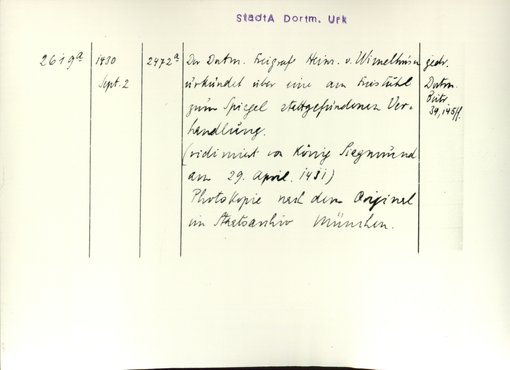 StadtA Dortm. Urk
2619a
1430
Sept. 2
2472a
Der Dortm. Freigraf Heinr. v. Wimelhusen
urkundet über eine am Freistuhl
zum Spiegel stattgefundenen Ver-
handlung.
(vidimiert von König Siegmund
am 29. April. 1431)
Photokopie nach dem Original
im Staatsarchiv München.
gedr.
Dortm.
Beitr.
39,145ff.